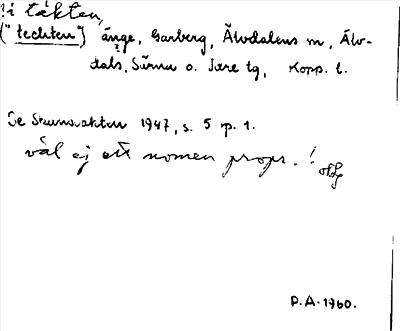 i täkten,
("techten") änge, Garberg, Älvdalens sn, Älv-
dals, Särna o. Idre tg, Kopp. l.
Se Skansvakten 1947, s. 5 sp. 1.
väl ej ett nomen propr.!
P.A. 1960.